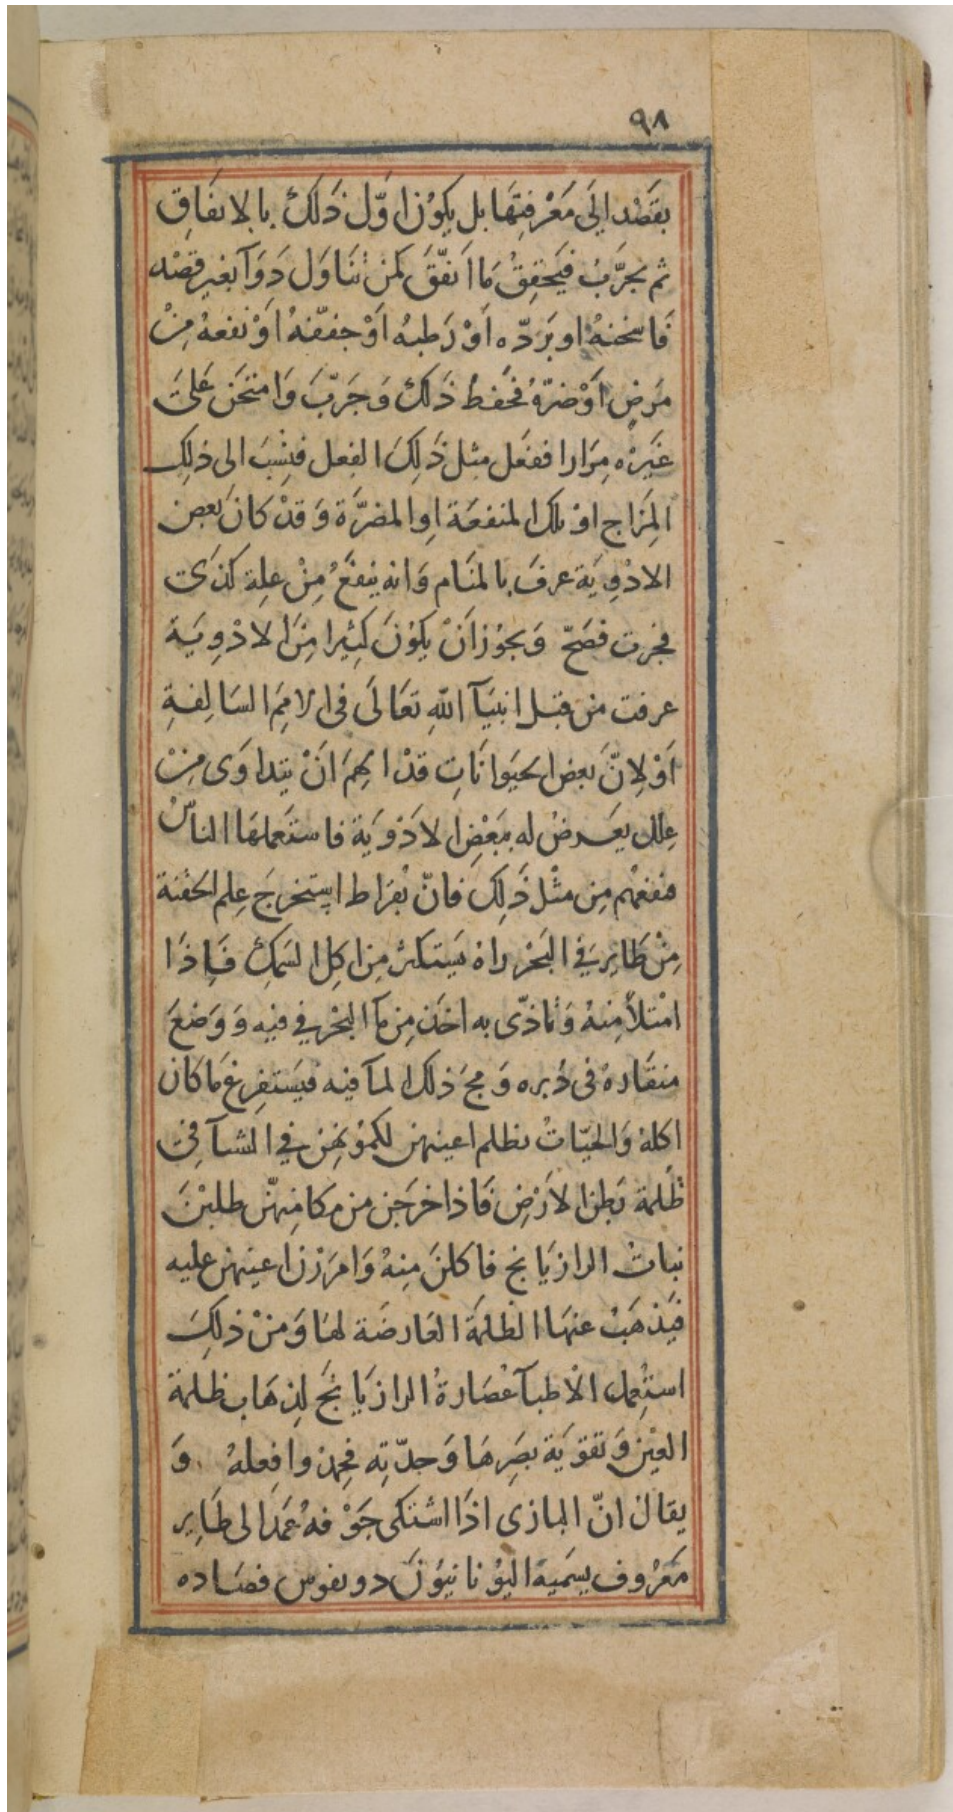 ٩٨
بقَصْد الَى مَعْرفتِهَا بل يكوُن اوّل ذَلكَ بالاتفَاقِ
ثم يجرَّبُ فيَحققُ مَا اتفّقَ كمَن تنَاول دَوَآ بغير قصْد
فَاسخنهُ او بَردّه اَوْ رَطبهُ اَوْ جففّهُ اَوْ نفعهُ مِنْ
مَرضٍ اَوْ ضرّهُ فحَفظ ذَلكَ وَجَرّبَ وَامتحَن عَلىَ
غَيَرْه مِرَارا ففعَل مثل ذَلِكَ الفعل فنِسُبَ الى ذلِك
المِزَاج اوْ تلك المنفعَة او المضرَّة وَقدْ كانَ بَعض
الادْوِيَة عرفَ بالمنَام وَانه ينفَعُ مِنْ علِة كذَىَ
فجرت فصَحّ وَيجوُز اَنْ يكوُنَ كثِيرا مِنَ الادْوِيَة
عرفت من قبل انبيَآ اللّهِ تعَالَى فى الامَمِ السَالِفةِ
اَوْ لِانّ بَعض الحيَوانَاتِ قدْ الهِمَ انَْ يتداوَى مِنْ
عِللٍ يعَرضُ له ببَعْضِ الادَْويَة فاستَعملهَا الناسُّ
فنفعهُم مِن مثْل ذَلِكَ فانّ بقرَاط استخرجَ عِلم الحقنَة
مِنْ طَايرٍ فيَ البَحْر راهْ يَستكثرْ مِن اكلِ السَمكِ فَاِذَا
امْتلأ مِنهُ وَتأذىّ به اخذ مِن مآ البَحْر في فيْه وَوَضعَ
منقَارهُ فى دُبره وَمجَ ذلك المآ فيْه فيَستفرِغ مَا كَان
اكلهُ وَالحيّاتُ تظلم اعينهن لكموُنِهن فيِ الشتآ فىِ
ظَلمة بَطن الارَْضِ فَاذا خرَجَن من مكامِنهنّ طلبْنَ
نباتْ الرازيَانج فاكلنَ مِنهُ وَامرَرْن اعينهن عليه
فيَذهَبُ عنهَا الظلمَة العَارضَة لهَا وَمنْ ذلِكَ
استُعمل الاطبآ عُصَارةُ الرازيَانجَ لِذهَاب ظلمة
العيْن وَتقويَة بصَرِهَا وَحدّتِه فحمدوا فعِلهُ وَ
يقال انّ البازى اذَا اشتكى جَوْفهُ عَمدَ الى طَايرٍ
مَعْرُوف يسَمّيهْ اليوُنانيوُنَ دوىفوس فصَاده